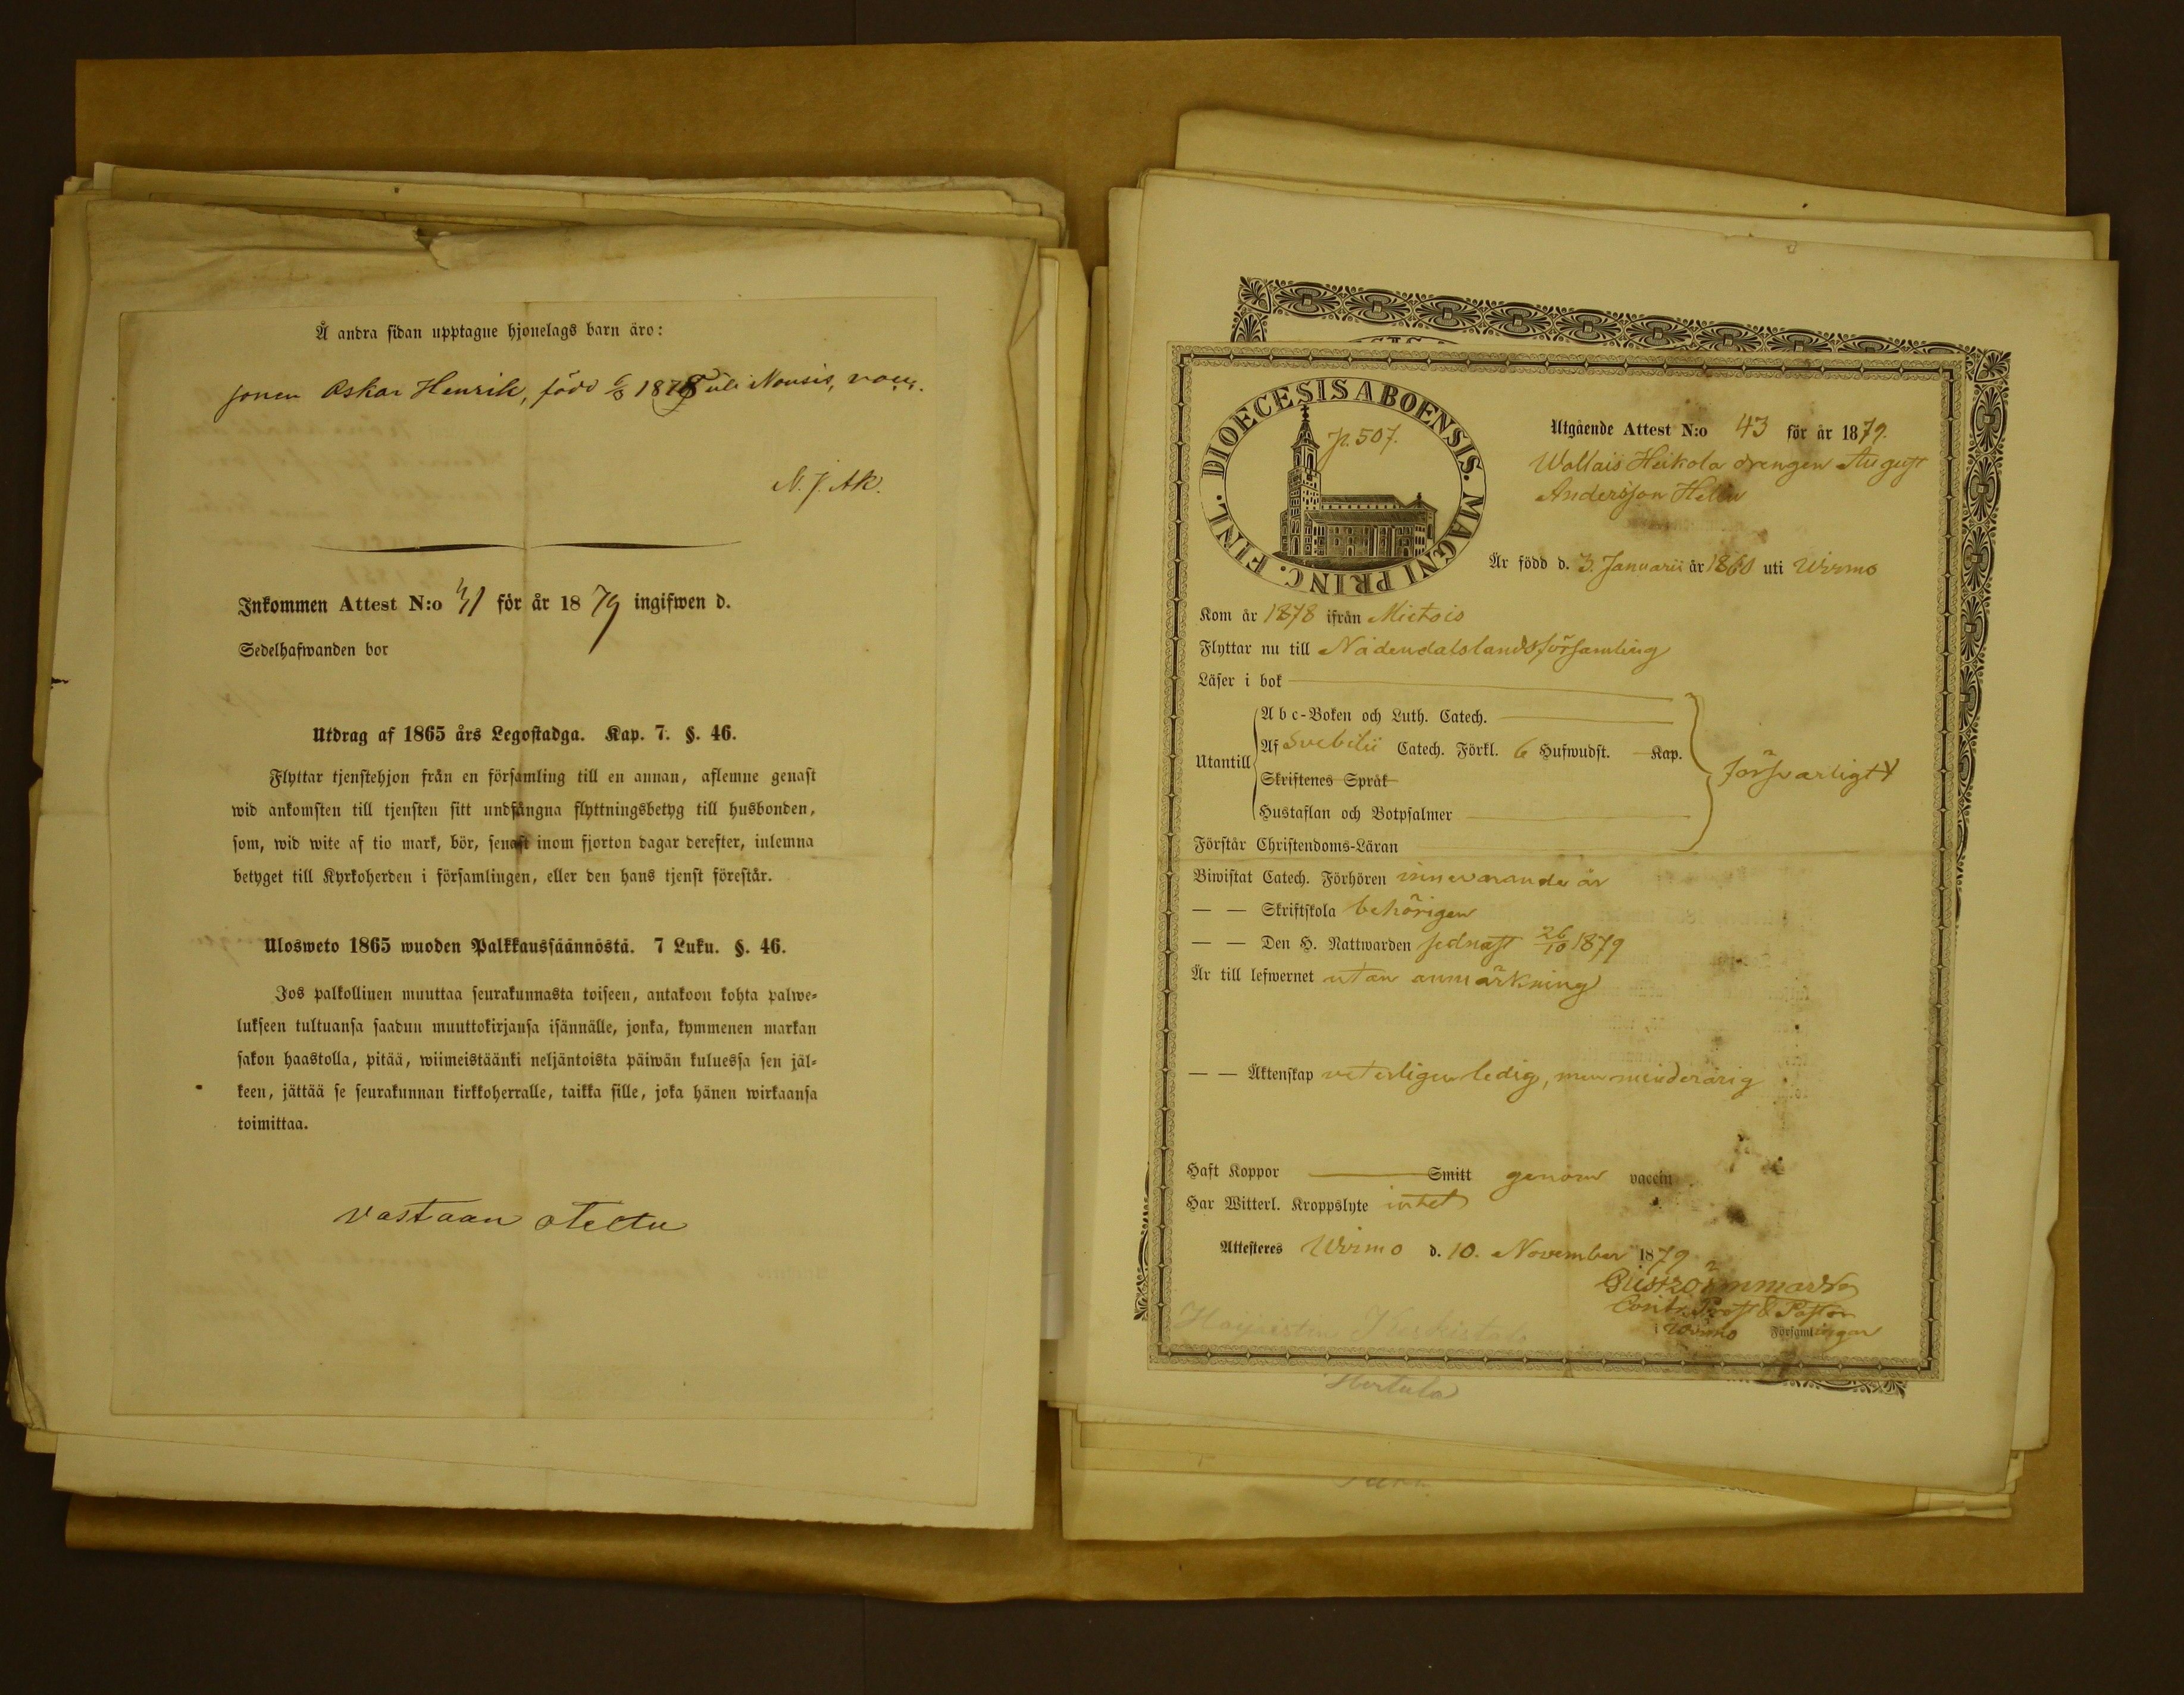 Å andra sidan upptagne hjonelags barn äro:
sonen Oskar Henrik, född 6/3 1878 uti Nousis, vacc.
N. J. Ak.
Inkommen Attest N:o 31 för år 1879 ingifwen d.
Sedelhafwanden bor
Utdrag af 1865 års Legostadga. Kap. 7. §. 46.
Flyttar tjenstehjon från en församling till en annan, aflemne genast
wid ankomsten till tjensten sitt undfångna flyttningsbetyg till husbonden,
som, wid wite af tio mark, bör, senast inom fjorton dagar derefter, inlemna
betyget till Kyrkoherden i församlingen, eller den hans tjenst förestår.
Ulosweto 1865 wuoden Palkkaussäännöstä. 7 Luku. §. 46.
Jos palkollinen muuttaa seurakunnasta toiseen, antakoon kohta palwe-
lukseen tultuansa saadun muuttokirjansa isännälle, jonka, kymmenen markan
sakon haastolla, pitää, wiimeistäänki neljäntoista päiwän kuluessa sen jäl-
keen, jättää se seurakunnan kirkkoherralle, taikka sille, joka hänen wirkaansa
toimittaa.
vastaan otettu
DIOECESIS ABOENSIS. MAGNI PRINC. FINL.
p. 507.
Utgående Attest N:o 43 för år 1879.
Wallais Heikola drengen August
Andersson Helin
Är född d. 3. Januarii år 1860 uti Wirmo
Kom år 1878 ifrån Mietois
Flyttar nu till Nådendalslandsförsamling
Läser i bok
Utantill
A b c-Boken och Luth. Catech.
Af Svebilii Catech. Förkl. 6 Hufwudst. Kap.
Skriftenes Språk
Hustaflan och Botpsalmer
försvarligt
Förstår Christendoms-Läran
Biwistat Catech. Förhören innevarande år
— — Skriftskola behörigen
— — Den H. Nattwarden sednast 26/10 1879
Är till lefwernet utan anmärkning
— — Äktenskap veterligen ledig, men minderårig
Haft Koppor Smitt genom vaccin
Har Witterl. Kroppslyte intet
Attesteres Wirmo d. 10. November 1879
Contr. Prost & Pastor
i Wirmo Församlingar
Hertula